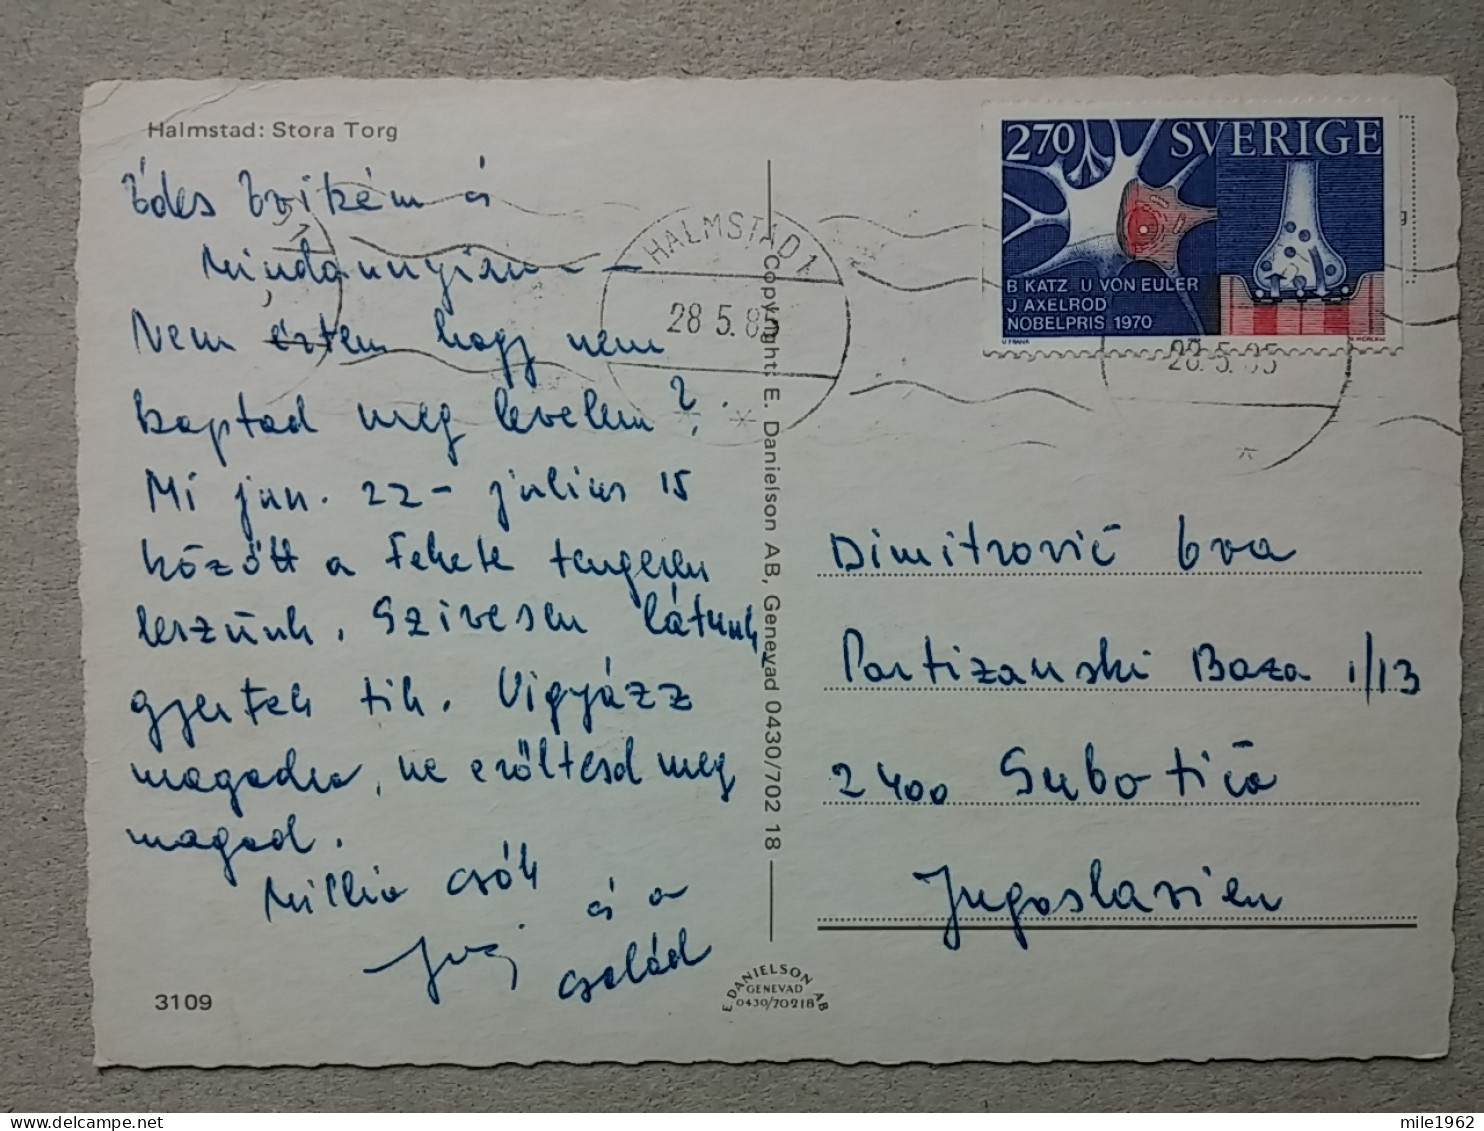 Halmstad: Stora Torg
Édes Évikém és
Mindannyian - -
Nem értem hogy nem
kaptad meg levelem?
Mi jun. 22 - július 15
között a Fekete tengeren
leszünk. Szivesen látunk,
gyertek tik. Vigyázz
magadra, ne erőltesd meg
magad.
Millio csók
és a
család
3109
Copyright: E. Danielson AB, Genevad 0430/702 18
E DANIELSON AB
GENEVAD
0430/70218
HALMSTAD 1
28 5.85
28.5.85
270 SVERIGE
B KATZ U VON EULER
J AXELROD
NOBELPRIS 1970
Dimitrovič Eva
Partizanski Baza 1/13
2400 Subotica
Jugoslavien
mile1962